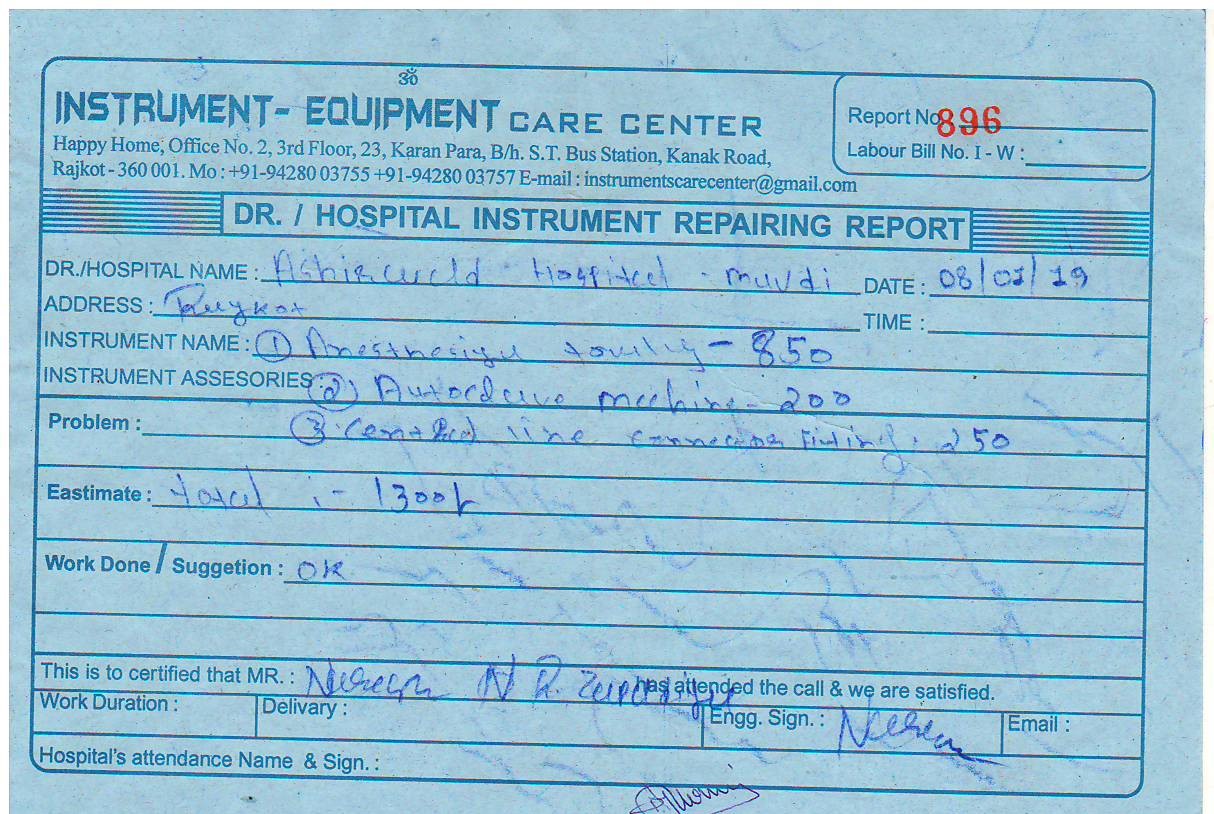 ॐ
INSTRUMENT- EQUIPMENT CARE CENTER
Happy Home, Office No. 2, 3rd Floor, 23, Karan Para, B/h. S.T. Bus Station, Kanak Road,
Rajkot - 360 001. Mo : +91-94280 03755 +91-94280 03757 E-mail : instrumentscarecenter@gmail.com
Report No 896
Labour Bill No. I - W :
DR. / HOSPITAL INSTRUMENT REPAIRING REPORT
DR./HOSPITAL NAME : Hospital - muvdi DATE : 08/01/19
ADDRESS : Rajkot
TIME :
INSTRUMENT NAME : ① - 850
INSTRUMENT ASSESORIES : ② Autoclave machine - 200
Problem : ③ line fitting . 250
Eastimate : total :- 1300/-
Work Done / Suggetion : OK
This is to certified that MR. : N has attended the call & we are satisfied.
Work Duration :
Delivary :
Engg. Sign. :
Email :
Hospital's attendance Name & Sign. :